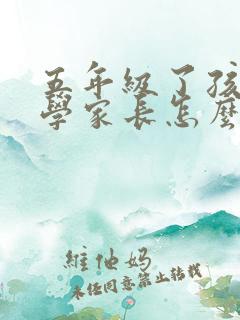 五年級了孩
學家長怎麼
維他媽
未經同意禁止轉載